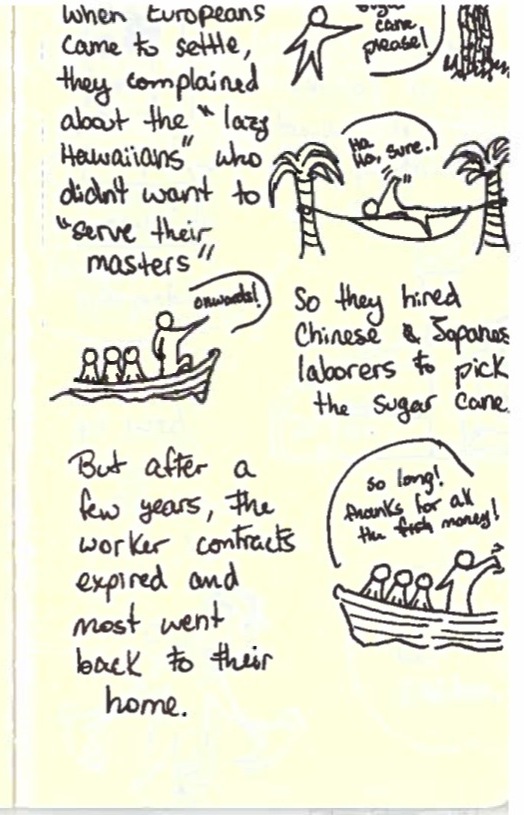 When Europeans
came to settle,
they complained
about the "lazy
Hawaiians" who
didn't want to
"serve their
masters"
cane
please!
Ha
Ha, sure.
onwards!
So they hired
Chinese & Japanes
laborers to pick
the sugar cane.
But after a
few years, the
worker contracts
expired and
most went
back to their
home.
so long!
thanks for all
the fish money!